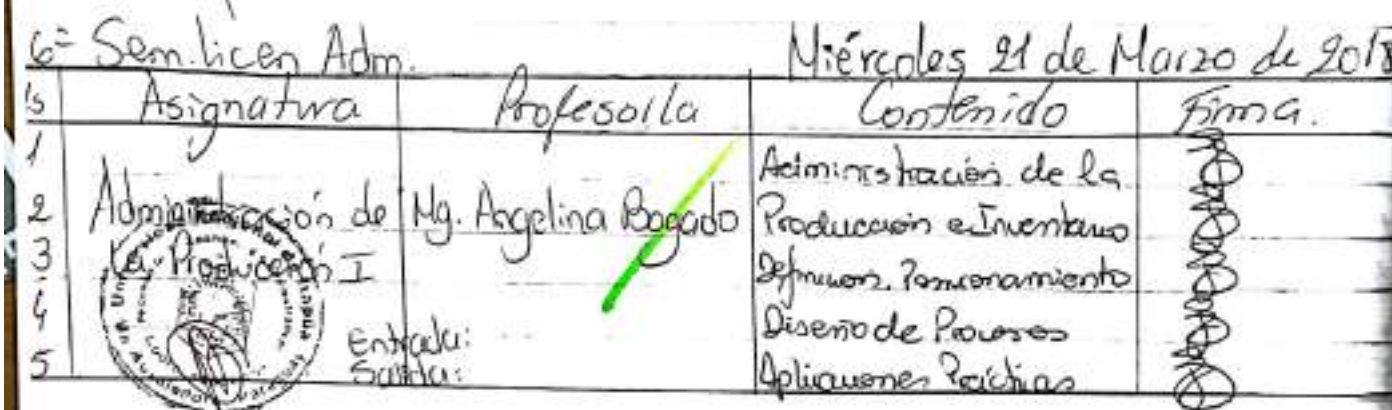 6º Sem. licen Adm. Miércoles 21 de Marzo de 2018
Hs Asignatura Profesor/a Contenido Firma.
1 Administración de la
2 Administración de Mg. Angelina Bogado Producción e Inventario
3 la Producción I Definición. Posicionamiento
4 Diseño de Procesos
Entrada:
5 Salida: Aplicaciones Prácticas